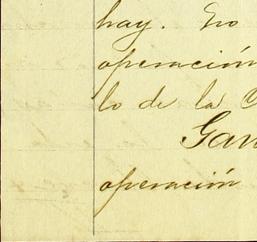 hay. No
operación
lo de la
Gan
operación